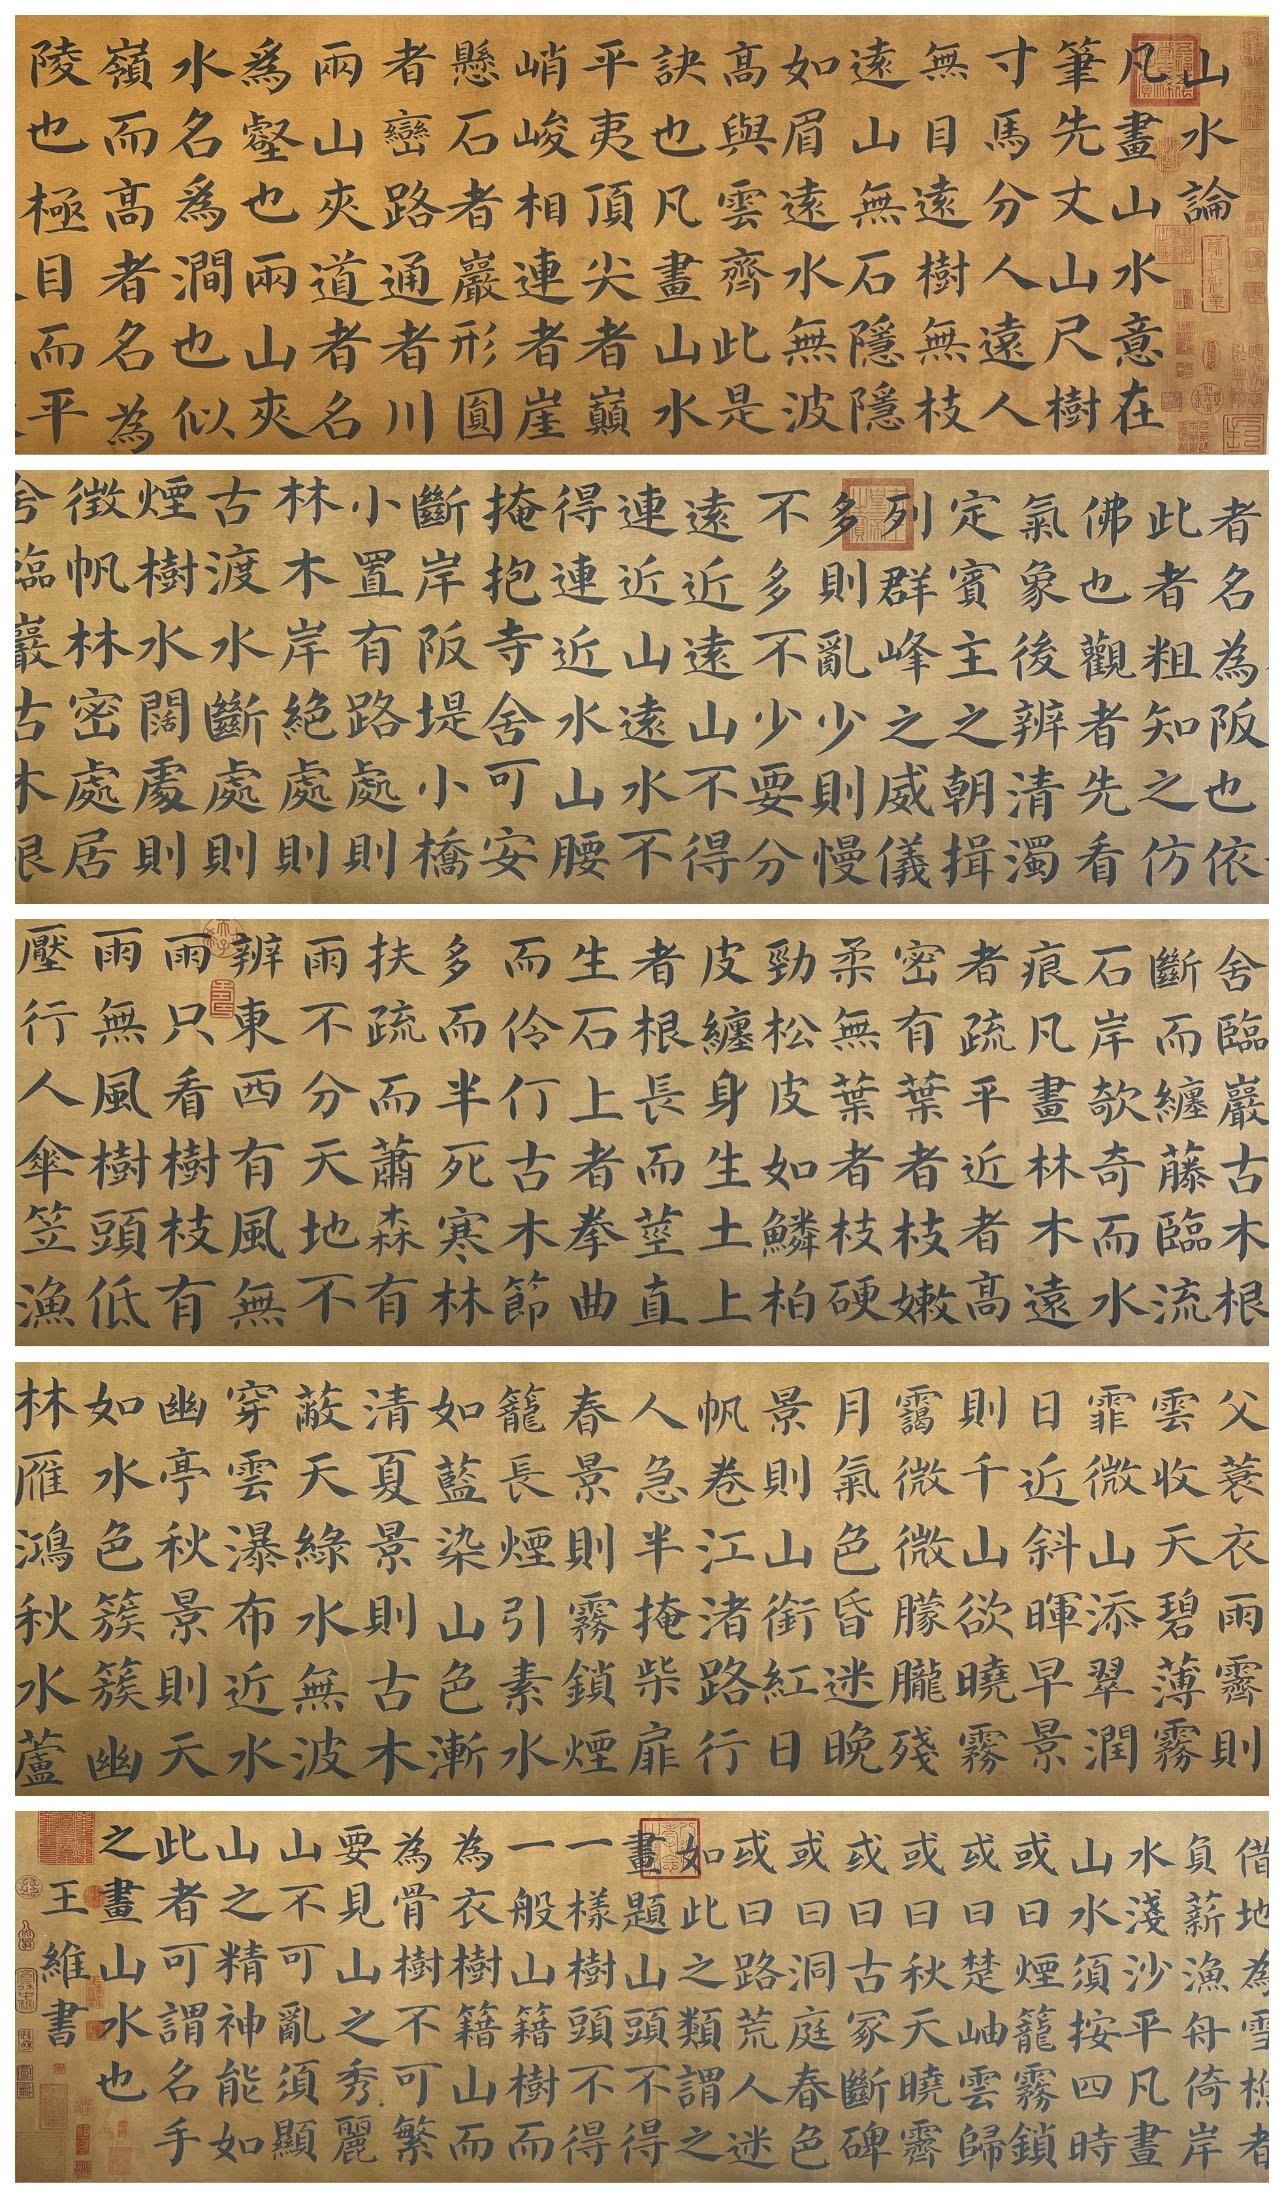 山水論
凡畫山水意在
筆先丈山尺樹
寸馬分人遠人
無目遠樹無枝
遠山無石隱隱
如眉遠水無波
高與雲齊此是
訣也凡畫山水
平夷頂尖者巔
峭峻相連者崖
懸石者巖形圓
者巒路通者川
兩山夾道者名
為壑也兩山夾
水名為澗也似
嶺而高者名為
陵也極目而平
者名為阪也依
此者粗知之仿
佛也觀者先看
氣象後辨清濁
定賓主之朝揖
列群峰之威儀
多則亂少則慢
不多不少要分
遠近遠山不得
連近山遠水不
得連近水山腰
掩抱寺舍可安
斷岸阪堤小橋
小置有路處則
林木岸絕處則
古渡水斷處則
煙樹水闊處則
徵帆林密處居
舍臨巖古木根
斷而纏藤臨流
石岸欹奇而水
痕凡畫林木遠
者疏平近者高
密有葉者枝嫩
柔無葉者枝硬
勁松皮如鱗柏
皮纏身生土上
者根長而莖直
生石上者拳曲
而伶仃古木節
多而半死寒林
扶疏而蕭森有
雨不分天地不
辨東西有風無
雨只看樹枝有
雨無風樹頭低
壓行人傘笠漁
父蓑衣雨霽則
雲收天碧薄霧
霏微山添翠潤
日近斜暉早景
則千山欲曉霧
靄微微朦朧殘
月氣色昏迷晚
景則山銜紅日
帆卷江渚路行
人急半掩柴扉
春景則霧鎖煙
籠長煙引素水
如藍染山色漸
清夏景則古木
蔽天綠水無波
穿雲瀑布近水
幽亭秋景則天
如水色簇簇幽
林雁鴻秋水蘆
借地為雪樵者
負薪漁舟倚岸
水淺沙平凡畫
山水須按四時
或曰煙籠霧鎖
或曰楚岫雲歸
或曰秋天曉霽
或曰古冢斷碑
或曰洞庭春色
或曰路荒人迷
如此之類謂之
畫題山頭不得
一樣樹頭不得
一般山籍樹而
為衣樹籍山而
為骨樹不可繁
要見山之秀麗
山不可亂須顯
山之精神能如
此者可謂名手
之畫山水也
王維書